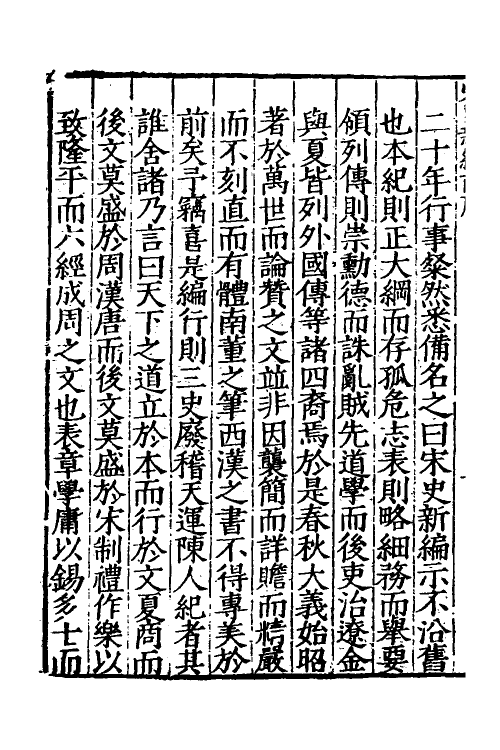 二十年行事粲然悉備名之曰宋史新編示不沿舊
也本紀則正大綱而存孤危志表則略細務而舉要
領列傳則崇勳德而誅亂賊先道學而後吏治遼金
與夏皆列外國傳等諸四裔焉於是春秋大義始昭
著於萬世而論贊之文並非因襲簡而詳贍而精嚴
而不刻直而有體南董之筆西漢之書不得專美於
前矣予竊喜是編行則三史廢稽天運陳人紀者其
誰舍諸乃言曰天下之道立於本而行於文夏商而
後文莫盛於周漢唐而後文莫盛於宋制禮作樂以
致隆平而六經成周之文也表章學庸以錫多士而